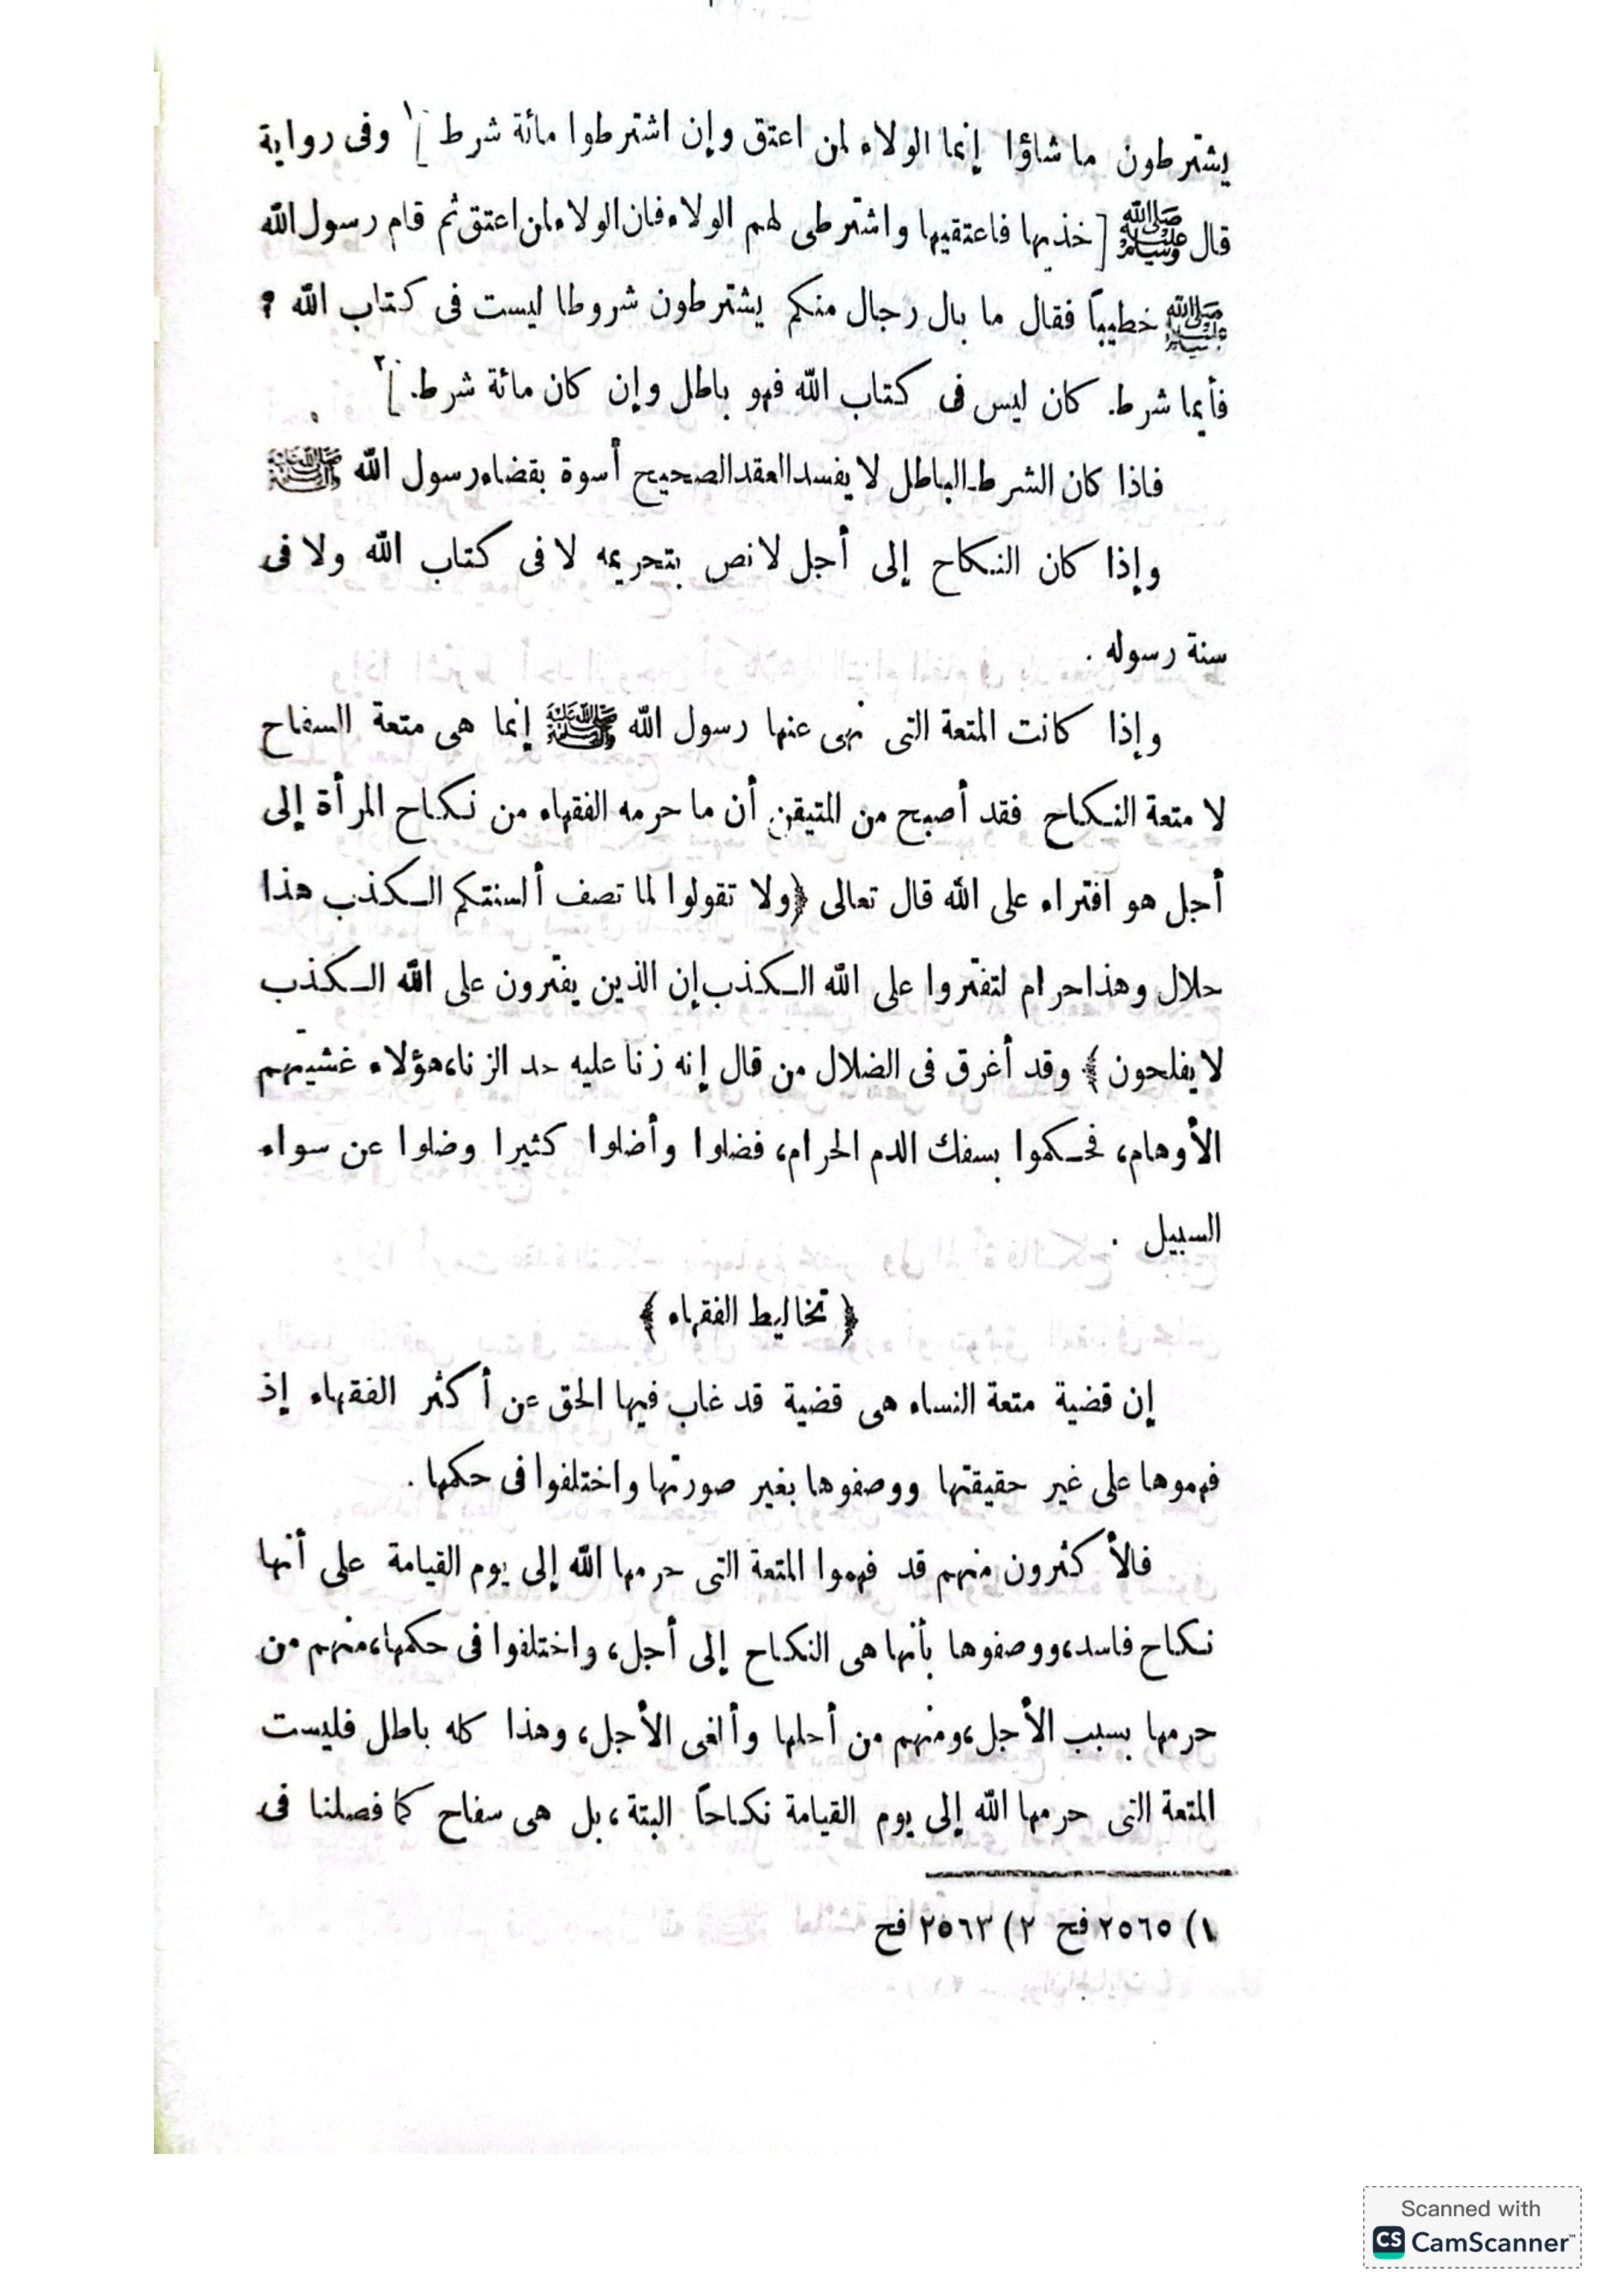 يشترطون ما شاؤا إنما الولاء لمن اعتق وإن اشترطوا مائة شرط ]١ وفى رواية
قال ﷺ [ خذيها فاعتقيها واشترطى لهم الولاء فان الولاء لمن اعتق ثم قام رسول الله
ﷺ خطيباً فقال ما بال رجال منكم يشترطون شروطا ليست فى كتاب الله ؟
فأيما شرط كان ليس فى كتاب الله فهو باطل وإن كان مائة شرط ]٢
فاذا كان الشرط الباطل لا يفسد العقد الصحيح أسوة بقضاء رسول الله ﷺ
وإذا كان النكاح إلى أجل لا نص بتحريمه لا فى كتاب الله ولا فى
سنة رسوله .
وإذا كانت المتعة التى نهى عنها رسول الله ﷺ إنما هى متعة السفاح
لا متعة النكاح فقد أصبح من المتيقن أن ما حرمه الفقهاء من نكاح المرأة إلى
أجل هو افتراء على الله قال تعالى ﴿ولا تقولوا لما تصف ألسنتكم الكذب هذا
حلال وهذا حرام لتفتروا على الله الكذب إن الذين يفترون على الله الكذب
لا يفلحون ﴾ وقد أغرق فى الضلال من قال إنه زنا عليه حد الزنا، هؤلاء غشيتهم
الأوهام، فحكموا بسفك الدم الحرام، فضلوا وأضلوا كثيرا وضلوا عن سواء
السبيل .
﴿ تخاليط الفقهاء ﴾
إن قضية متعة النساء هى قضية قد غاب فيها الحق عن أكثر الفقهاء إذ
فهموها على غير حقيقتها ووصفوها بغير صورتها واختلفوا فى حكمها .
فالأكثرون منهم قد فهموا المتعة التى حرمها الله إلى يوم القيامة على أنها
نكاح فاسد، ووصفوها بأنها هى النكاح إلى أجل، واختلفوا فى حكمها، منهم من
حرمها بسبب الأجل، ومنهم من أحلها وألغى الأجل، وهذا كله باطل فليست
المتعة التى حرمها الله إلى يوم القيامة نكاحاً البتة، بل هى سفاح كما فصلنا فى
١) ٢٥٦٥ فح ٢) ٢٥٦٣ فح
Scanned with
CS CamScanner